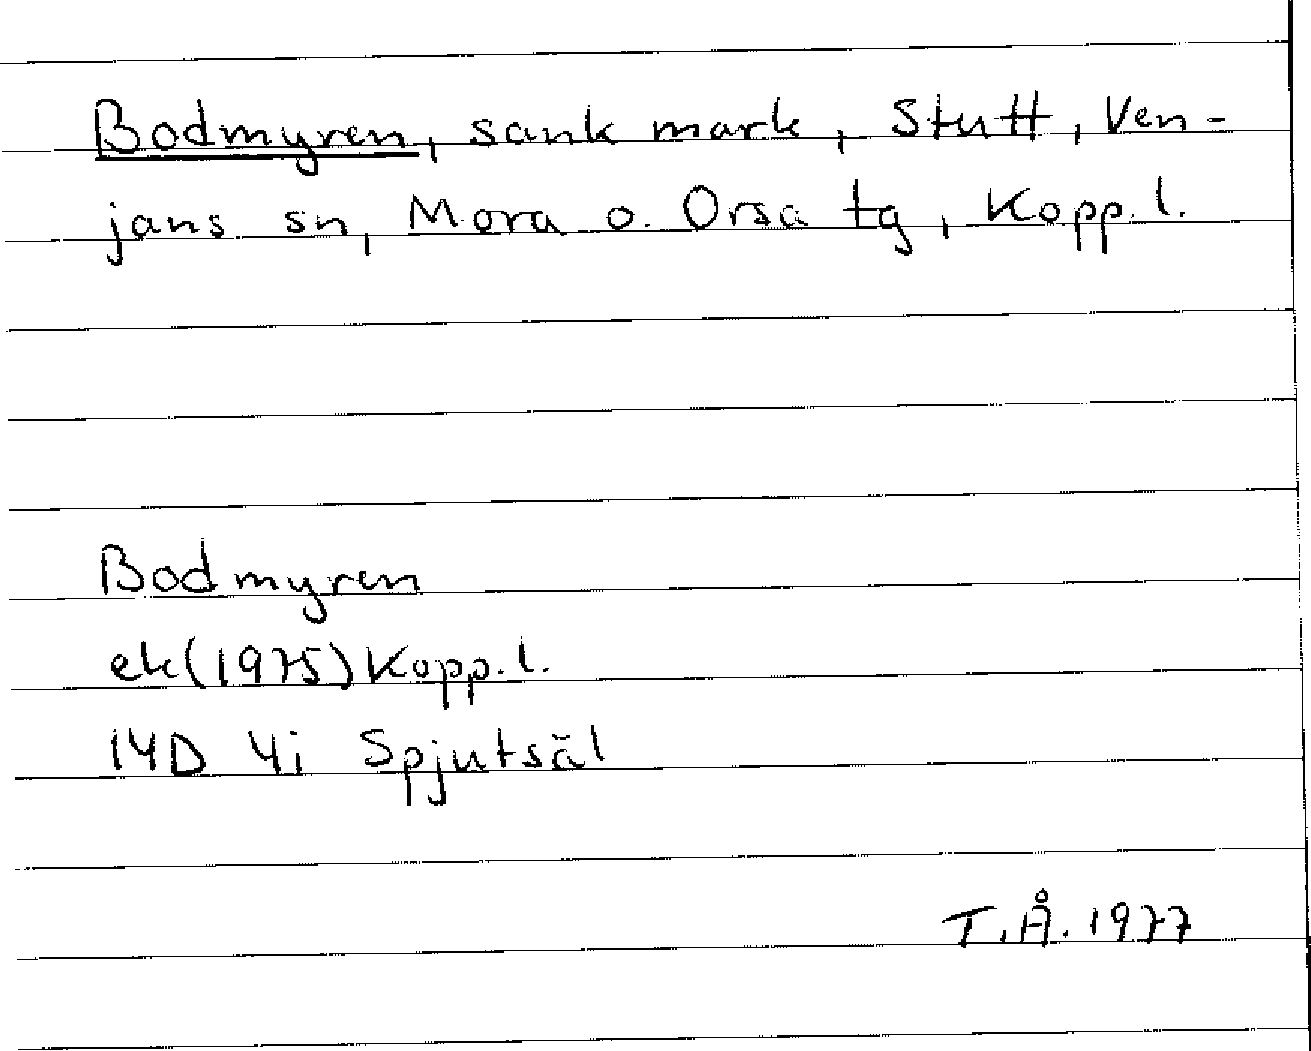 Bodmyren, sank mark, Stutt, Ven-
jans sn, Mora o. Orsa tg, Kopp. l.
Bodmyren
ek(1975) Kopp. l.
14D 4i Spjutsäl
T.Å. 1977